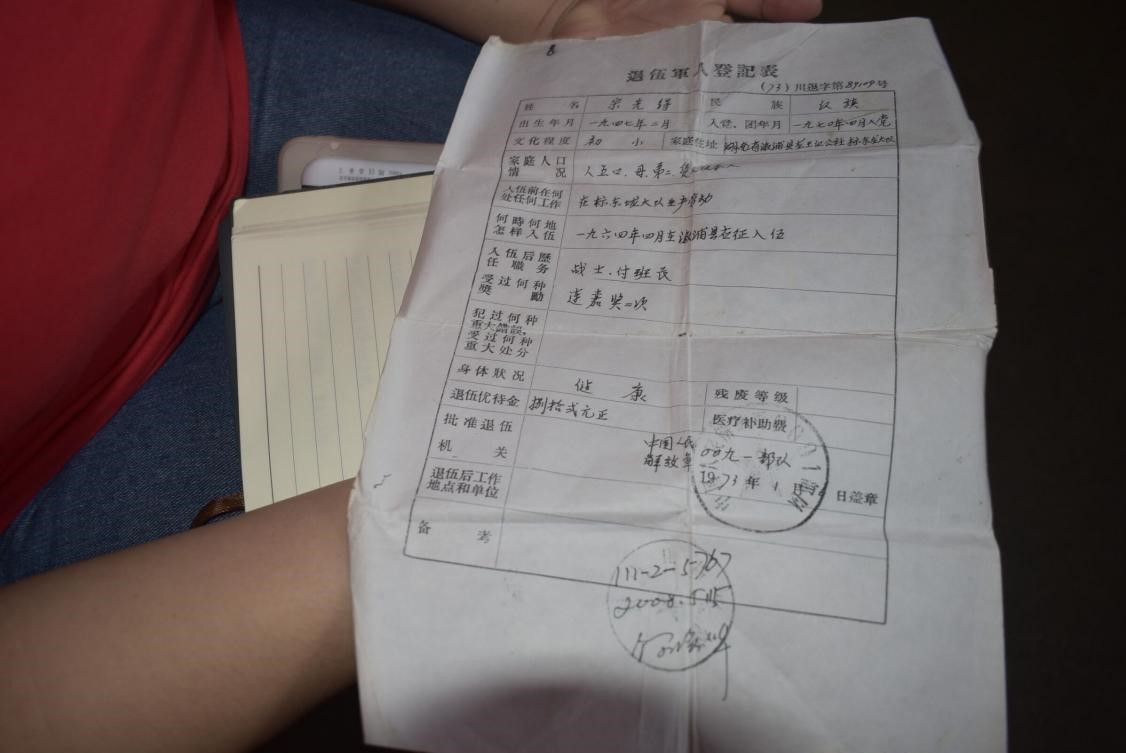 8
退伍軍人登記表
(73) 川退字第89109号
姓名 宗先绪 民族 汉族
出生年月 一九四七年二月 入党、团年月 一九七〇年四月入党
文化程度 初小 家庭住址 溆浦县
家庭人口情况 人五口、母、弟二、
入伍前在何处任何工作 在标东垅大队生产劳动
何時何地怎样入伍 一九六四年四月在溆浦县应征入伍
入伍后歷任職务 战士、付班长
受过何种獎勵 连嘉奖二次
犯过何种重大错誤，受过何种重大处分
身体狀况 健康 残废等级
退伍优待金 捌拾弍元正 医疗补助费
批准退伍机关 中国人民解放军 00九一部队
1973年1月 日盖章
退伍后工作地点和单位
备考
111-2-5-767
2008.5.15